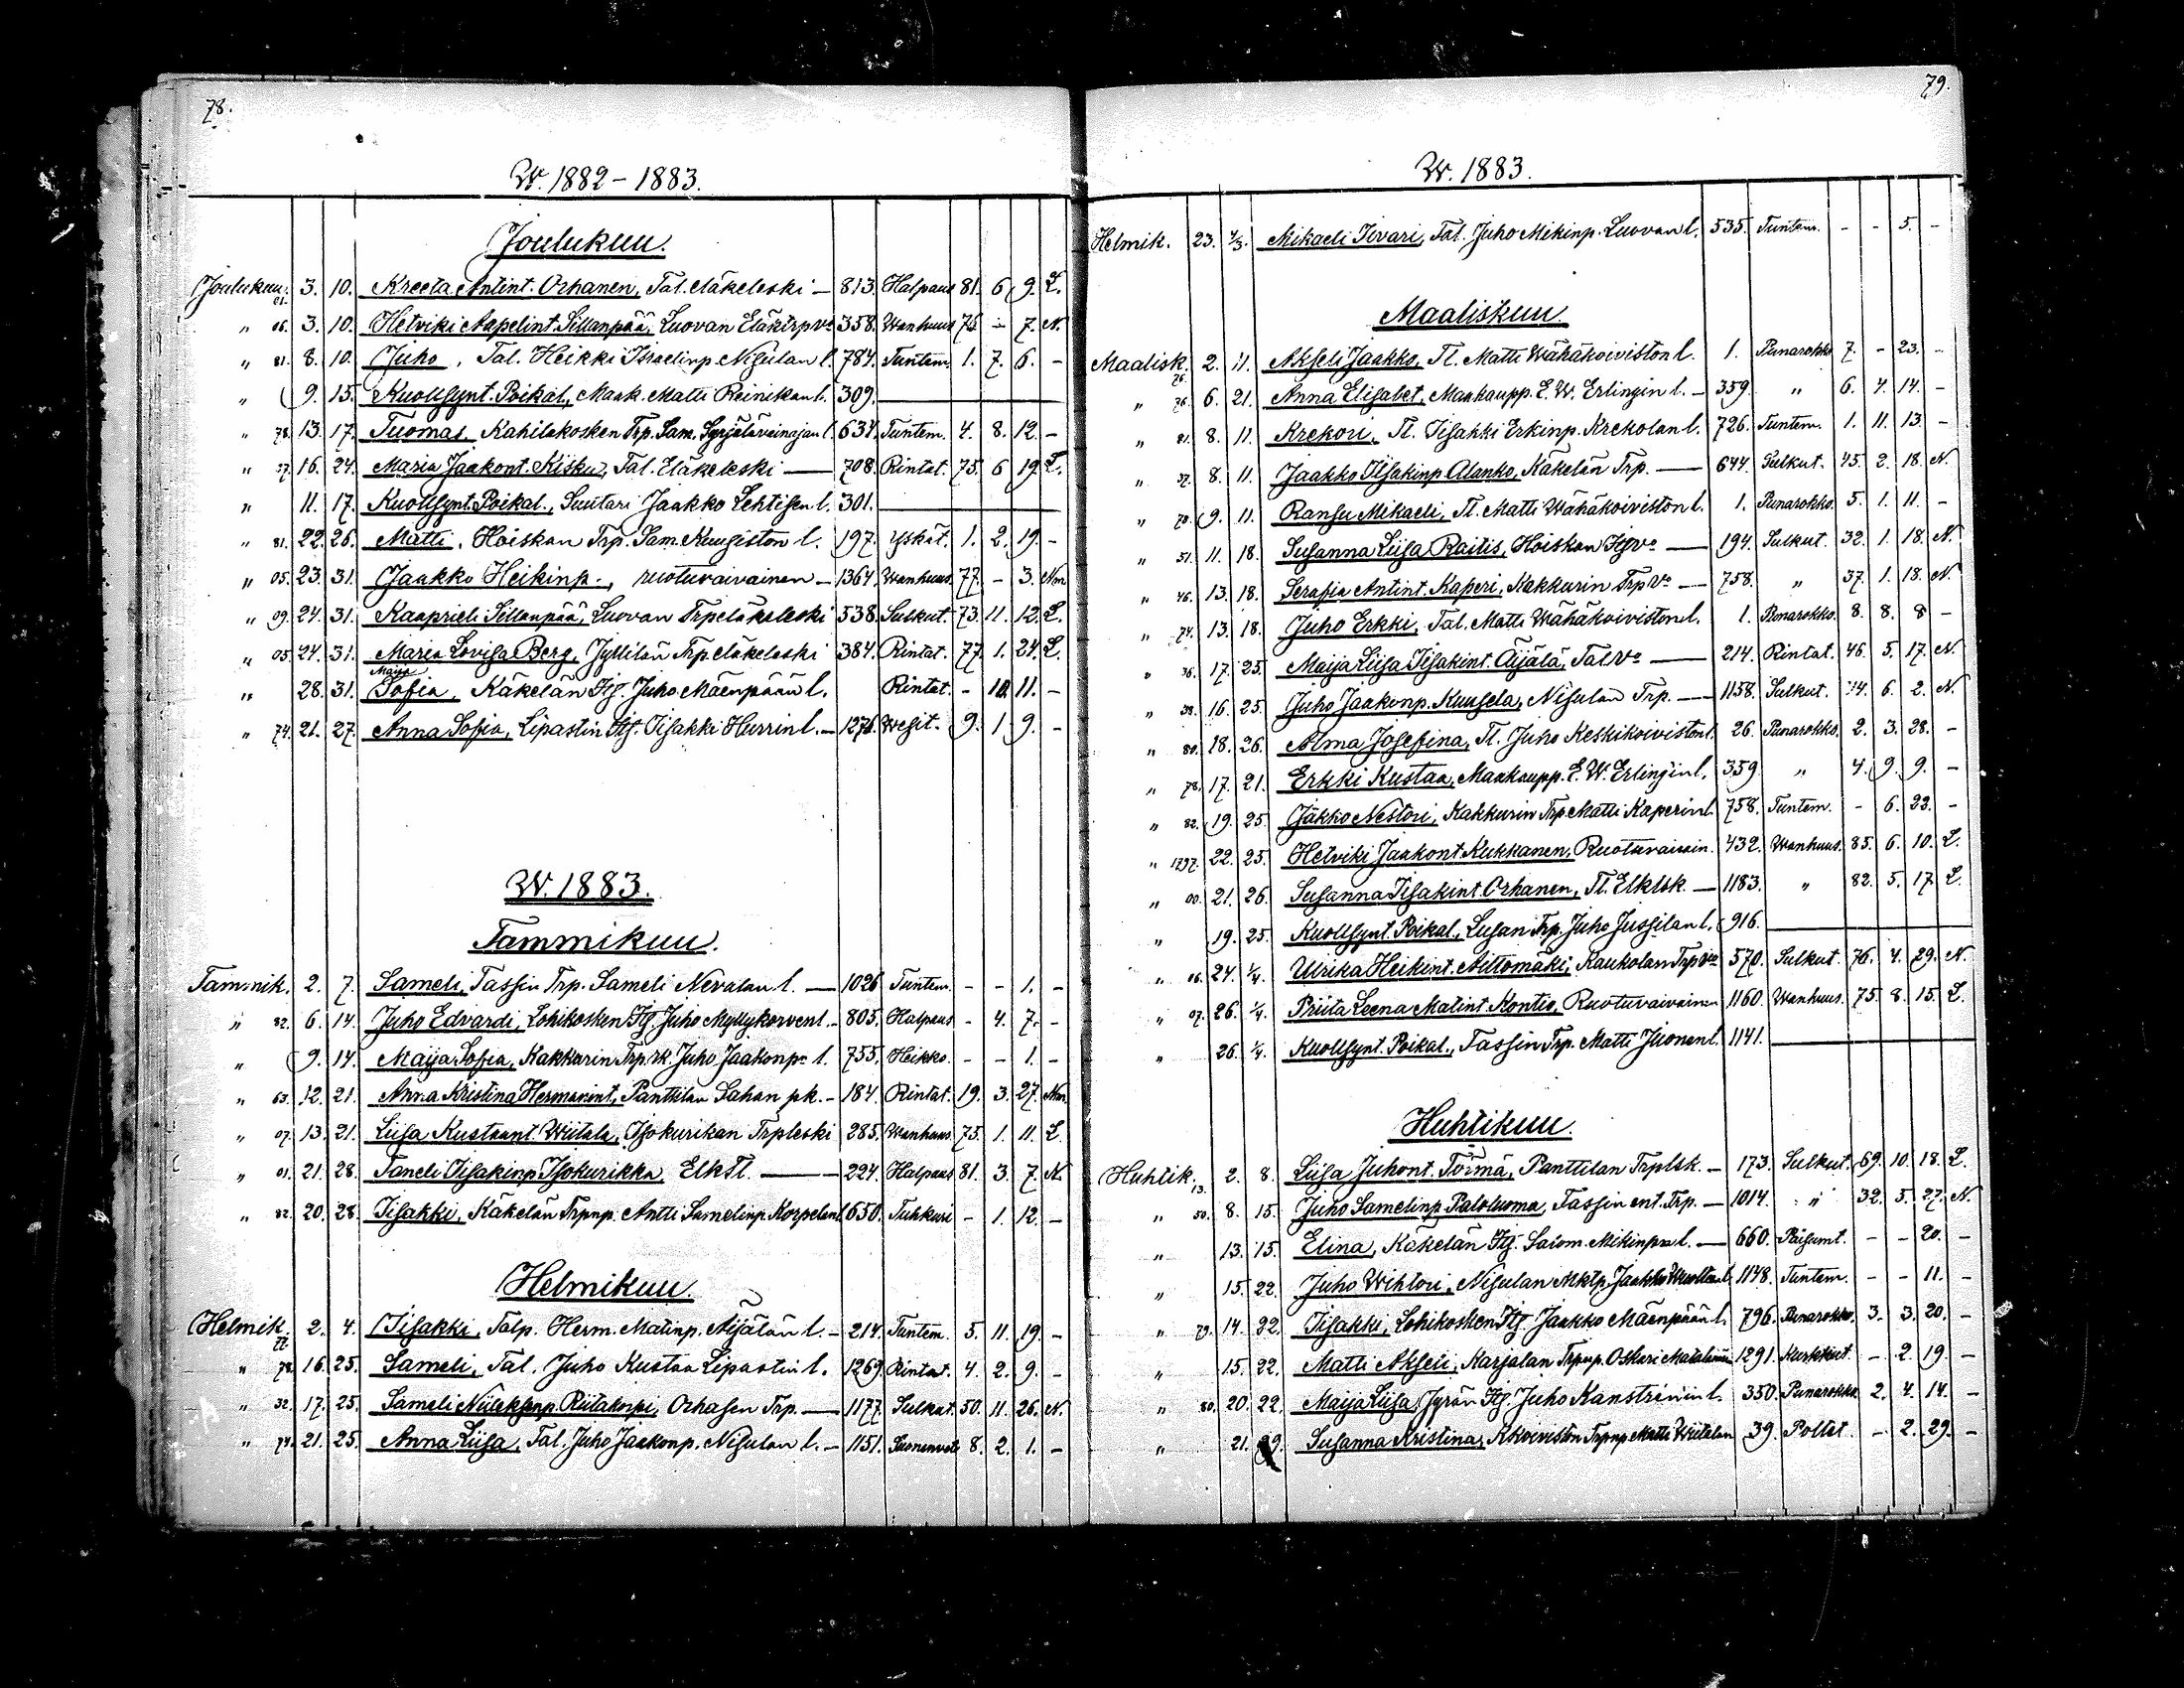 78.
W. 1882-1883.
Joulukuu.
Joulukuu. 01. 3. 10. Kreeta Antint. Orhanen, Tal. eläkeleski - 813. Halpaus 81. 6. 9. L.
" 06. 3. 10. Hetviki Aapelint. Sillanpää, Luovan Eläktrpvo 358. Wanhuus 76 - 7. N.
" 81. 8. 10. Juho, Tal. Heikki Israelinp. Nisulan l. 784. Tuntem. 1. 7. 6. -
" 9. 15. Kuolfsynt. Poikal., Maak. Matti Reinikan l. 309.
" 78. 13. 17. Tuomas, Kahilakosken Trp. Sam. Syrjälävainajan l. 634. Tuntem. 4. 8. 12. -
" 07. 16. 24. Maria Jaakont. Kisku, Tal. Eläkeleski - 708. Rintat. 75. 6 19 L.
" 11. 17. Kuolfsynt. Poikal., Suutari Jaakko Lehtisen l. 301.
" 81. 22. 26. Matti, Hoiskan Trp. Sam. Kuusiston l. 197. Yskät. 1. 2. 19. -
" 05. 23. 31. Jaakko Heikinp., ruotuvaivainen - 1364. Wanhuus. 77. - 3. Nm
" 09. 24. 31. Kaaprieli Sillanpää, Luovan Trpeläkeleski 538. Sulkut. 73. 11. 12. L.
" 05. 24. 31. Maria Lovisa Berg, Jyllilän Trp. eläkeleski 384. Rintat. 77. 1. 24. L.
" 28. 31. Maija Sofia, Käkelän Itg. Juho Mäenpään l. Rintat. - 10. 11. -
" 74. 21. 27. Anna Sofia, Lipastin Itg. Iisakki Hurrin l. - 1276. Wesit. 9. 1 9. -
W. 1883.
Tammikuu.
Tammik. 2. 7. Sameli, Tassin Trp. Sameli Nevalan l. - 1026 Tuntem. - - 1. -
" 82. 6. 14. Juho Edvardi, Lohikosken Itg. Juho Myllykorven l. - 805. Halpaus - 4. 7. -
" 9. 14. Maija Sofia, Kakkurin Trp. rk. Juho Jaakonpn l. 755. Heikko. - - 1. -
" 63. 12. 21. Anna Kristina Hermanint., Panttilan Sahan pk. - 184. Rintat. 19. 3. 27. Nm.
" 07. 13. 21. Liisa Kustaant. Wiitala, Isokurikan Trpleski 285. Wanhuus. 75. 1. 11. L.
" 01. 21. 28. Taneli Iisakinp. Isokurikka, Elk Tl. - 224. Halpaus 81. 3. 7. N.
" 82. 20. 28. Iisakki, Käkelän Trpnp. Antti Samelinp. Korpelan l. 650. Tuhkuri - 1. 12. -
Helmikuu.
Helmik. 77. 2. 4. Iisakki, Talp. Herm. Matinp. Äijälän l. - 214. Tuntem. 5. 11. 19. -
" 78. 16. 25. Sameli, Tal. Juho Kustaa Lipastin l. 1269. Rintat. 4. 2. 9. -
" 32. 17. 25. Sameli Niileksenp. Riitakorpi, Orhasen Trp. - 1177. Sulkut. 50. 11. 26. N.
" 74. 21. 25. Anna Liisa, Tal. Juho Jaakonp. Nisulan l. - 1151. Suonenvet. 8. 2. 1. -
79.
W. 1883.
Helmik. 23. 4/3. Mikaeli Iivari, Tal. Juho Mikinp. Luovan l. 535. Tuntem. - - 5. -
Maaliskuu.
Maalisk. 76. 2. 11. Akseli Jaakko, Tl. Matti Wähäkoiviston l. 1. Punarokko. 7. - 23. -
" 76. 6. 21. Anna Elisabet, Maakaupp. E. W. Erlingin l. - 359. " 6. 4. 14. -
" 81. 8. 11. Krekori, Tl. Iisakki Erkinp. Krekolan l. 726. Tuntem. 1. 11. 13. -
" 37. 8. 11. Jaakko Iisakinp. Alanko, Käkelän Trp. - 644. Sulkut. 45. 2. 18. N.
" 78. 9. 11. Ransu Mikaeli, Tl. Matti Wähäkoiviston l. 1. Punarokko. 5. 1. 11. -
" 51. 11. 18. Susanna Liisa Raitis, Hoiskan Itgvo - 194. Sulkut. 32. 1. 18. N.
" 46. 13. 18. Serafia Antint. Kaperi, Kakkurin Trpvo - 758. " 37. 1. 18. N.
" 74. 13. 18. Juho Erkki, Tal. Matti Wähäkoiviston l. 1. Punarokko. 8. 8. 8 -
" 36. 17. 25. Maija Liisa Iisakint. Äijälä, Talvo - 214. Rintat. 46. 5. 17. N.
" 16. 25. Juho Jaakonp. Kuusela, Nisulan Trp. - 1158. Sulkut. 44. 6. 2. N.
" 80. 18. 26. Alma Josefina, Tl. Juho Keskikoiviston l. 26. Punarokko. 2. 3. 28. -
" 78. 17. 21. Erkki Kustaa, Maakaupp. E. W. Erlingin l. 359. " 4. 9. 9. -
" 82. 19. 25. Jakko Nestori, Kakkurin Trp. Matti Kaperin l. 758. Tuntem. - 6. 23. -
" 1797. 22. 25. Hetviki Jaakont. Kukkanen, Ruotuvaivain. 432. Wanhuus. 85. 6. 10. L.
" 00. 21. 26. Susanna Iisakint. Orhanen, Tl. Elklsk. - 1183. " 82. 5. 17. L.
" 19. 25. Kuolfsynt. Poikal., Lusan Trp. Juho Jussilan l. 916.
" 06. 24. 1/4. Ulrika Heikint. Aittomäki, Kaukolan Trpvo 570. Sulkut. 76. 4. 29. N.
" 07. 26. 1/4. Priita Leena Matint. Kontio, Ruotuvaivainen 1160. Wanhuus. 75. 8. 15. L.
" 26. 1/4. Kuolfsynt. Poikal., Tassin Trp. Matti Iluonen l. 1141.
Huhtikuu.
Huhtik. 13. 2. 8. Liisa Juhont. Törmä, Panttilan Trplsk. - 173. Sulkut. 69. 10. 18. L.
" 50. 8. 15. Juho Samelinp. Paloluoma, Tassin ent. Trp. - 1014. " 32. 5. 27. N.
" 13. 15. Elina, Käkelän Itg. Salom. Mikinpn l. - 660. Päisumt. - - 20. -
" 15. 22. Juho Wihtori, Nisulan Mktp. Jaakko l. 1148. Tuntem. - - 11. -
" 79. 14. 22. Iisakki, Lohikosken Itg. Jaakko Mäenpään l. 796. Punarokko. 3. 3. 20. -
" 15. 22. Matti Akseli, Karjalan Trpnp. Oskari 1291. Kurkkut. - 2. 19. -
" 80. 20. 22. Maija Liisa, Jyrän Itg. Juho Kanströmin l. 350. Punarokko. 2. 4. 14. -
" 21. 29. Susanna Kristina, Kkoiviston Trpnp. Matti Wiitalan 39. Poltet. - 2. 29. -